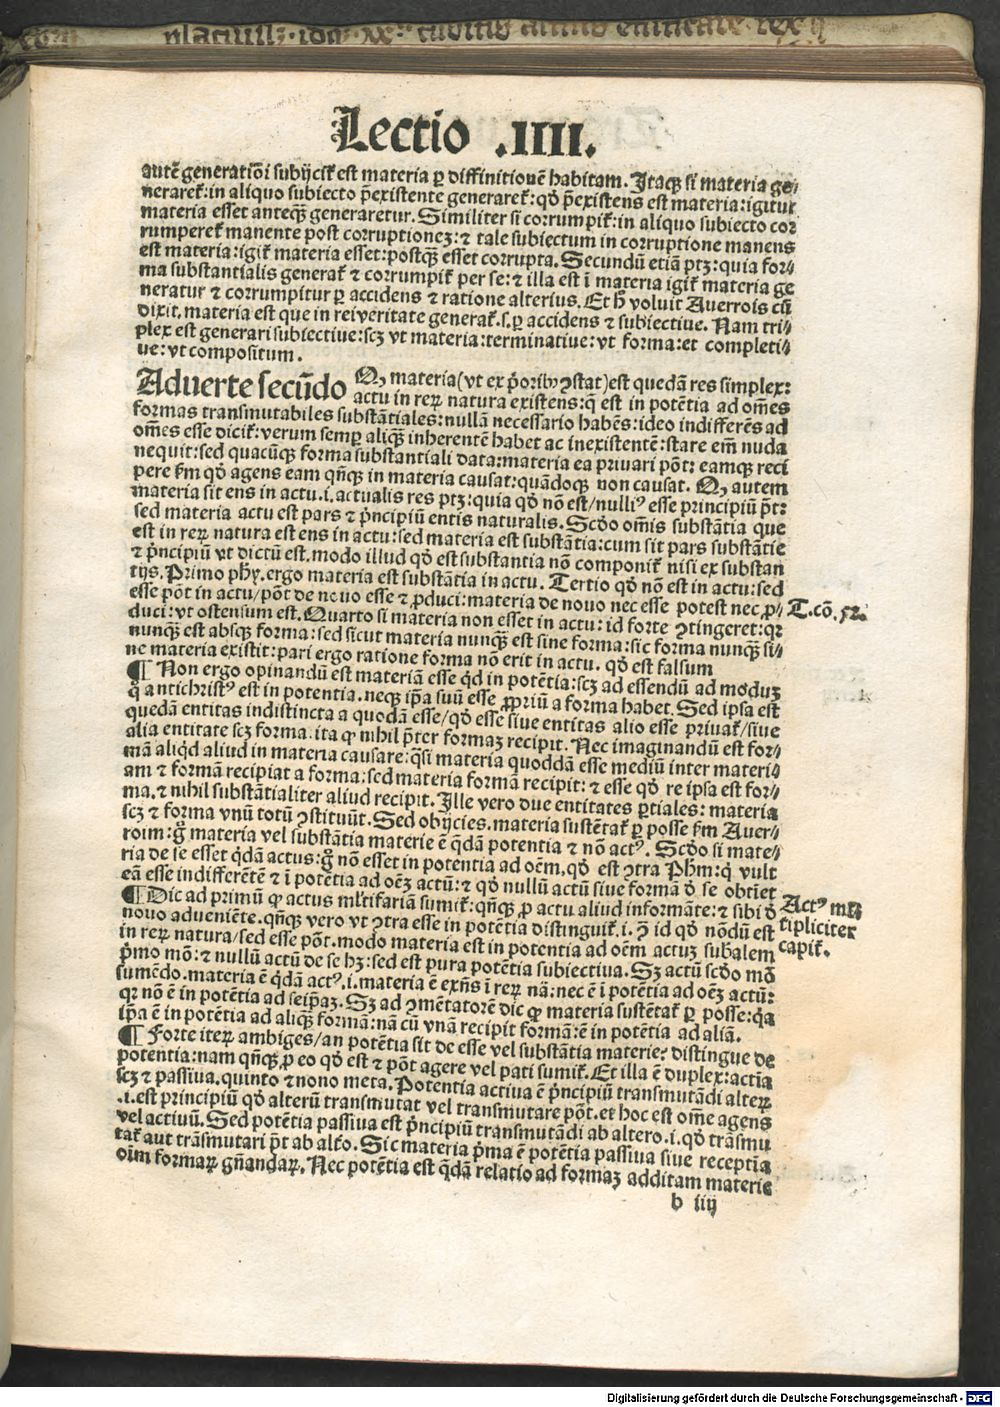 Lectio .IIII.
autē generatiōi subijcit̃ est materia ꝑ diffinitionē habitam. Itaqꝫ si materia ge⸗
neraret̃: in aliquo subiecto p̄existente generaret̃: qď p̄existens est materia: igitur
materia esset anteqꝫ generaretur. Similiter si corrumpit̃: in aliquo subiecto cor
rumperet̃ manente post corruptionez: ⁊ tale subiectum in corruptione manens
est materia: igit̃ materia esset: postqꝫ esset corrupta. Secundū etiā ptꝫ: quia for⸗
ma substantialis generat̃ ⁊ corrumpit̃ per se: ⁊ illa est ī materia igit̃ materia ge
neratur ⁊ corrumpitur ꝑ accidens ⁊ ratione alterius. Et h̄ voluit Auerrois cū
dixit. materia est que in rei veritate generat̃ .s. ꝑ accidens ⁊ subiectiue. Nam tri⸗
plex est generari subiectiue: scꝫ vt materia: terminatiue: vt forma: et completi⸗
ue: vt compositum.
Aduerte secūdo Qꝫ materia (vt ex p̄oribꝰ ꝯstat) est quedā res simplex:
actu in reꝝ natura existens: q̄ est in potētia ad om̄es
formas transmutabiles substātiales: nullā necessario habēs: ideo indifferēs ad
om̄es esse dicit̃: verum semꝑ aliqꝫ inherentē habet ac inexistentē: stare em̄ nuda
nequit: sed quacūqꝫ forma substantiali data: materia ea priuari pōt: eamqꝫ reci
pere ẜm qď agens eam qn̄qꝫ in materia causat: quādoqꝫ non causat. Qꝫ autem
materia sit ens in actu .i. actualis res ptꝫ: quia qď nō est / nulliꝰ esse principiū pōt:
sed materia actu est pars ⁊ p̄ncipiū entis naturalis. Scďo om̄is substātia que
est in reꝝ natura est ens in actu: sed materia est substātia: cum sit pars substātie
⁊ p̄ncipiū vt dictū est. modo illud qď est substantia nō componit̃ nisi ex substan
tijs. Primo phẏ. ergo materia est substātia in actu. Tertio qď nō est in actu: sed
esse pōt in actu / pōt de nouo esse ⁊ ꝓduci: materia de nouo nec esse potest nec ꝓ⸗
T. cō. 52.
duci: vt ostensum est. Quarto si materia non esset in actu: id forte ꝯtingeret: qꝛ
nunqꝫ est absqꝫ forma: sed sicut materia nunqꝫ est sine forma: sic forma nunqꝫ si⸗
ne materia existit: pari ergo ratione forma nō erit in actu. qď est falsum
¶ Non ergo opinandū est materiā esse qď in potētia: scꝫ ad essendū ad moduz
q̊ antichristꝰ est in potentia. neqꝫ ip̄a suū esse ꝓpriū a forma habet. Sed ipsa est
quedā entitas indistincta a quodā esse / qď esse siue entitas alio esse priuat̃ / siue
alia entitate scꝫ forma: ita ꝙ nihil p̄ter formaz recipit. Nec imaginandū est for⸗
mā aliqd aliud in materia causare: q̄si materia quoddā esse mediū inter materi⸗
am ⁊ formā recipiat a forma: sed materia formā recipit: ⁊ esse qď re ipsa est for⸗
ma. ⁊ nihil substātialiter aliud recipit. Ille vero due entitates ꝑtiales: materia
scꝫ ⁊ forma vnū totū ꝯstituūt. Sed obijcies. materia sustētat̃ ꝑ posse ẜm Auer⸗
roim: g̊ materia vel substātia materie ē q̄dā potentia ⁊ nō actꝰ. Scďo si mate⸗
ria de se esset q̄dā actus: g̊ nō esset in potentia ad oēm. qď est ꝯtra Phm: q̊ vult
eā esse indifferētē ⁊ ī potētia ad oēꝫ actū: ⁊ qď nullū actū siue formā ď se obtīet
¶ Dic ad primū ꝙ actus ml̃tifariā sumit̃: qn̄qꝫ ꝓ actu aliud informāte: ⁊ sibi ď
Actꝰ ml̃
nouo adueniēte. qn̄qꝫ vero vt ꝯtra esse in potētia distinguit̃ .i. ꝯ id qď nōdū est
tipliciter
in reꝝ natura / sed esse pōt. modo materia est in potentia ad oēm actuz subalem
capit̃.
p̄mo mō: ⁊ nullū actū de se hꝫ: sed est pura potētia subiectiua. Sꝫ actū scďo mō
sumēdo. materia ē q̄dā actꝰ .i. materia ē exn̄s ī reꝝ nā: nec ē ī potētia ad oēꝫ actū:
qꝛ nō ē in potētia ad seip̄aꝫ. Sꝫ ad ꝯmētatorē dic ꝙ materia sustētat̃ ꝑ posse: q̄a
ip̄a ē in potētia ad aliqꝫ formā: nā cū vnā recipit formā: ē in potētia ad aliā.
¶ Forte iteꝝ ambiges / an potētia sit de esse vel substātia materie? distingue de
potentia: nam qn̄qꝫ ꝓ eo qď est ⁊ pōt agere vel pati sumit̃. Et illa ē duplex: actīa
scꝫ ⁊ passiua. quinto ⁊ nono meta. Potentia actiua ē p̄ncipiū transmutādi alteꝝ
.i. est principiū qď alterū transmutat vel transmutare pōt. et hoc est om̄e agens
vel actiuū. Sed potētia passiua est p̄ncipiū transmutādi ab altero .i. qď trāsmu
tat̃ aut trāsmutari p̄t ab alt̃o. Sic materia p̄ma ē potētia passiua siue receptīa
oīm formaꝝ gn̄andaꝝ. Nec potētia est q̄dā relatio ad formaꝫ additam materie
b iiij
Digitalisierung gefördert durch die Deutsche Forschungsgemeinschaft - DFG